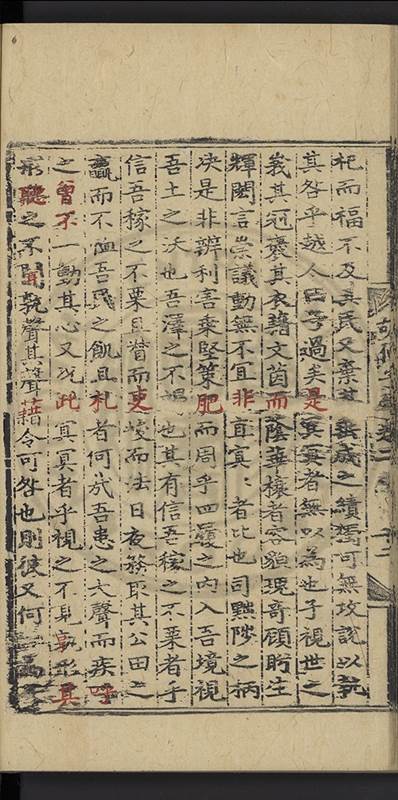 祀而福不及其民又棄其垂成之績獨可無攻說以執
其咎乎越人曰子過矣是冥冥者無以為也子視世之
峩其冠褒其衣藉文茵而蔭華榱者容貌瑰奇顧眄生
輝閎言崇議動無不宜非直冥〻者比也司黜陟之柄
决是非辨利害乘堅策肥而周乎四履之内入吾境視
吾土之沃也吾澤之不竭也其有信吾稼之不栗者乎
信吾稼之不栗且瞀而吏峻而法日夜務取其公田之
羸而不恤吾民之飢且札者何於吾患之大聲而疾呼
之曾不一動其心又况此冥冥者乎視之不見孰形其
形聽之不聞孰聲其聲藉令可咎也則彼又何